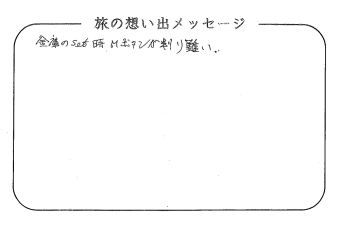 旅の想い出メッセージ
金庫のSet時Mボタンが判り難い。